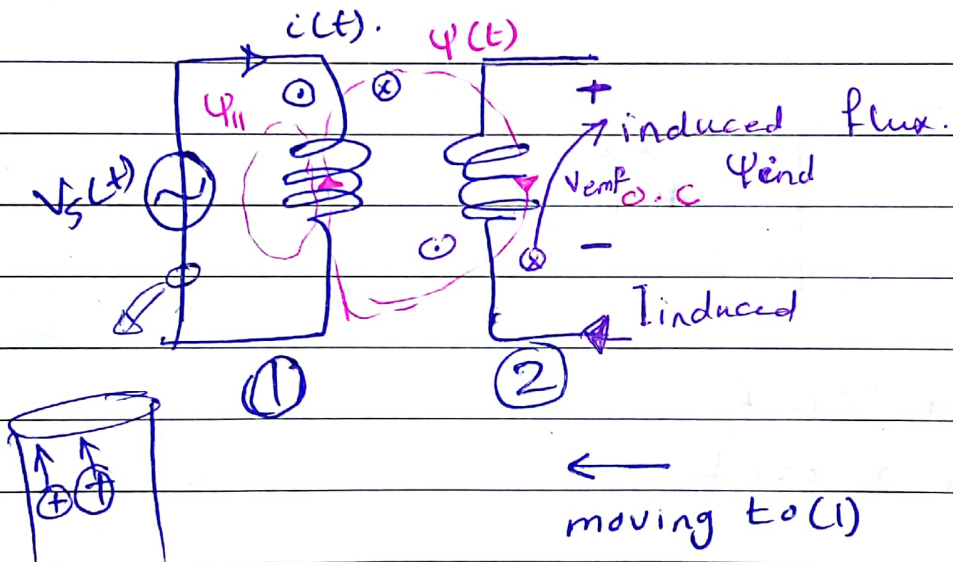 i(t).
ψ(t)
ψ11
+
induced flux.
Vs(t)
Vemf o.c ψind
−
Iinduced
① ②
+ +
←
moving to (1)